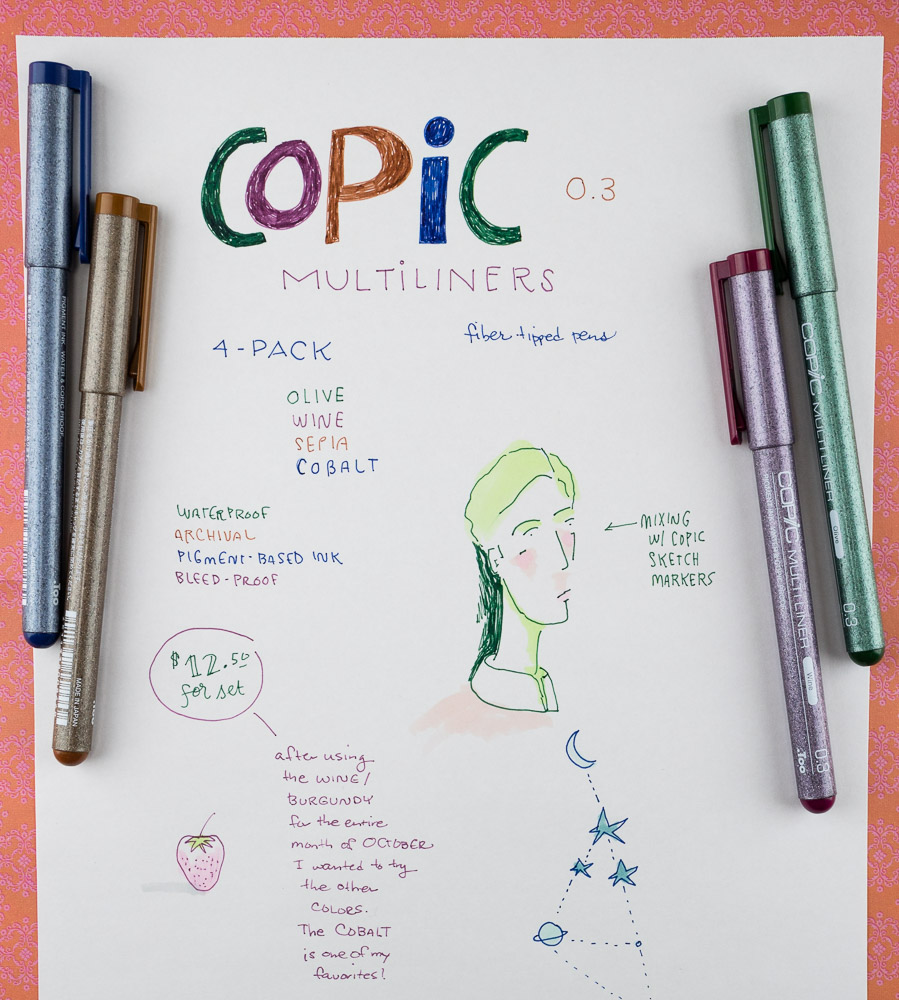 COPiC
0.3
MULTiLINERS
4-PACK
fiber-tipped pens
OLIVE
WINE
SEPIA
COBALT
WATERPROOF
ARCHIVAL
PIGMENT-BASED INK
BLEED-PROOF
MIXING
W/ COPIC
SKETCH
MARKERS
$12.50
for set
after using
the WINE/
BURGUNDY
for the entire
month of OCTOBER
I wanted to try
the other
COLORS.
The COBALT
is one of my
favorites!
PIGMENT INK WATER & COPIC PROOF
.Too
MADE IN JAPAN
COPIC MULTILINER
Olive
0.3
COPIC MULTILINER
Wine
.Too
0.3